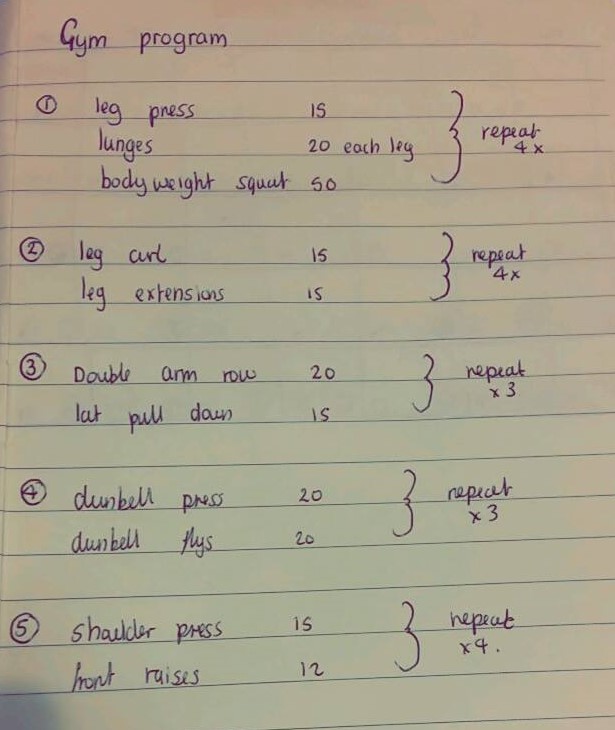 Gym program
① leg press 15
lunges 20 each leg
bodyweight squat 50
repeat
4x
② leg curl 15
leg extensions 15
repeat
4x
③ Double arm row 20
lat pull down 15
repeat
x3
④ dunbell press 20
dunbell flys 20
repeat
x3
⑤ shoulder press 15
front raises 12
repeat
x4.